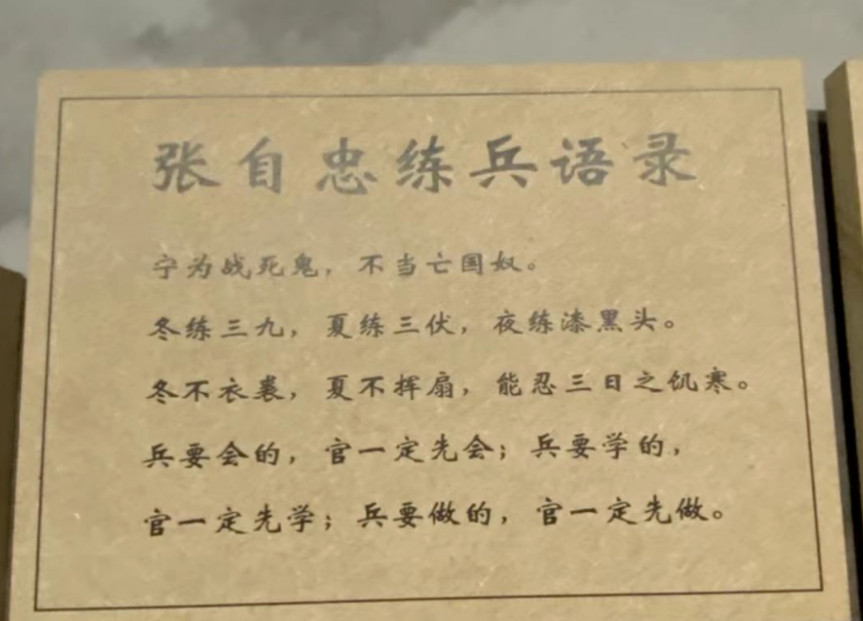 张自忠练兵语录
宁为战死鬼，不当亡国奴。
冬练三九，夏练三伏，夜练漆黑头。
冬不衣裘，夏不挥扇，能忍三日之饥寒。
兵要会的，官一定先会；兵要学的，
官一定先学；兵要做的，官一定先做。